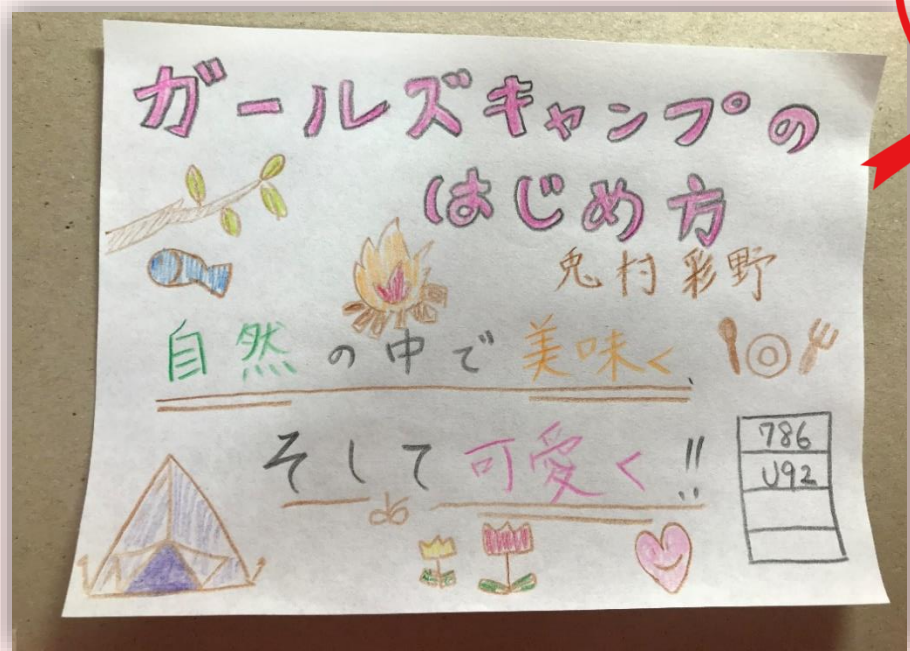 ガールズキャンプの
はじめ方
兎村彩野
自然の中で美味く、
そして可愛く!!
786
U92